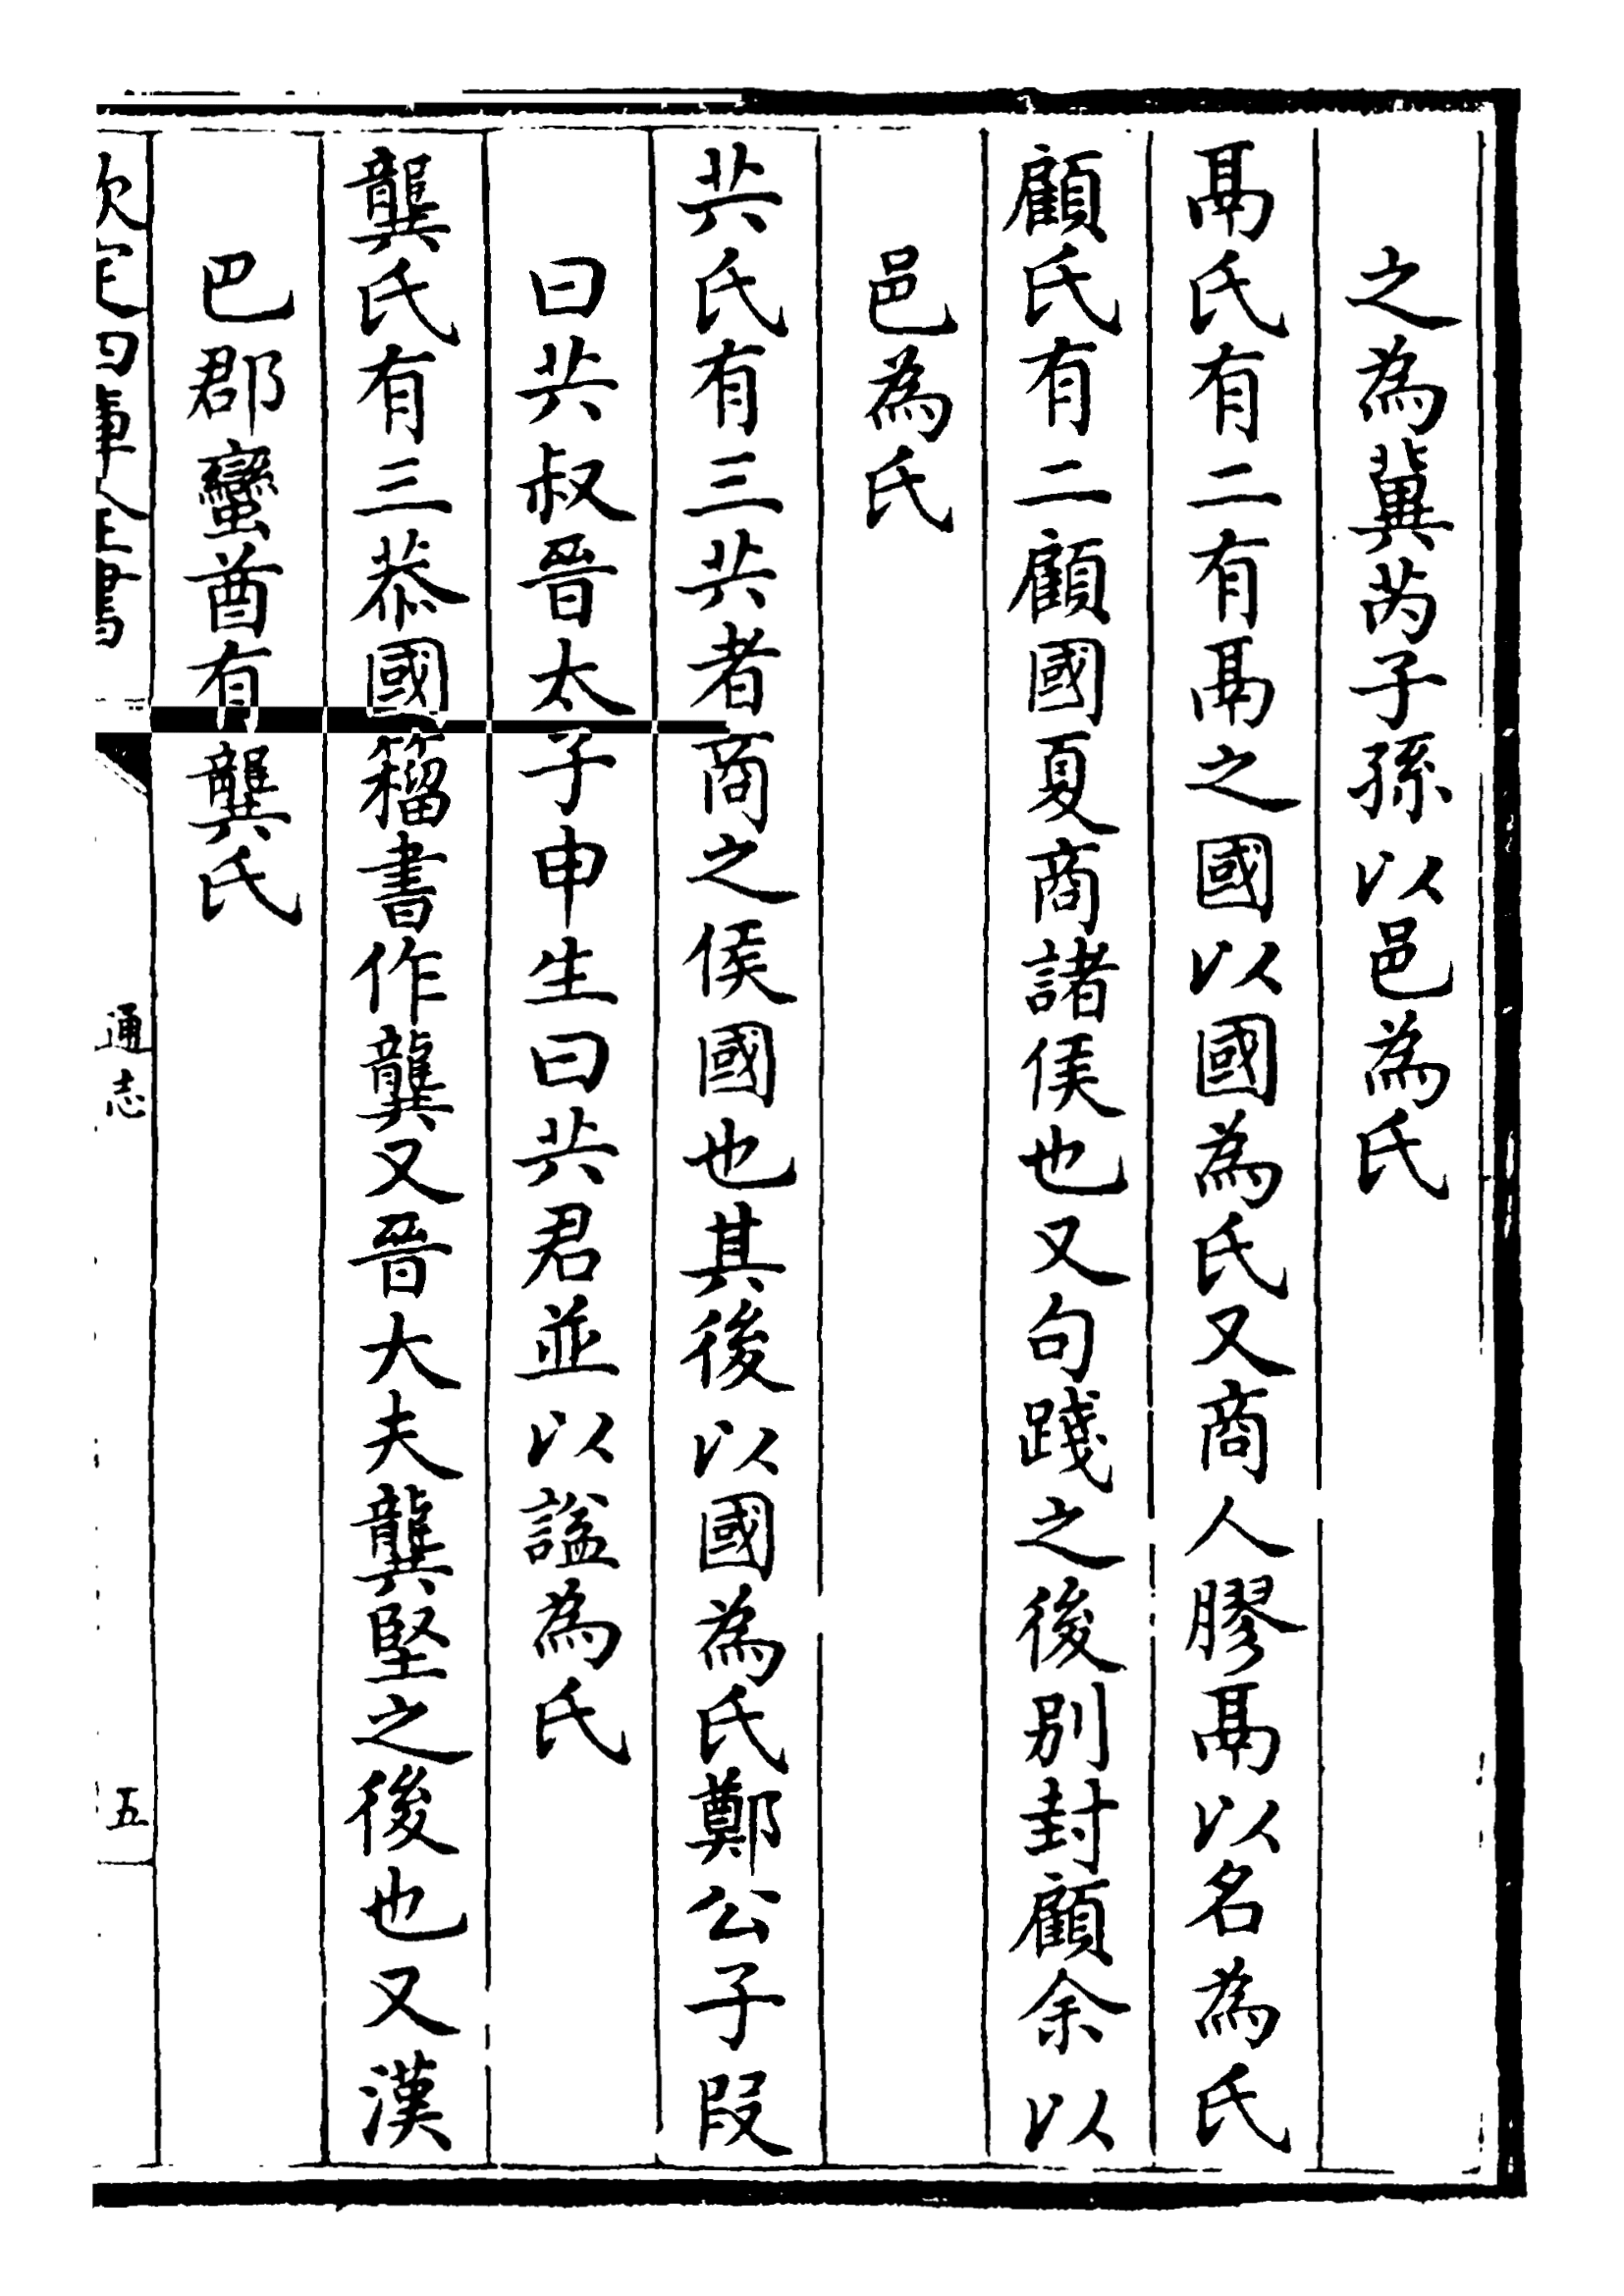 之為冀芮子孫以邑為氏
鬲氏有二有鬲之國以國為氏又商人膠鬲以名為氏
顧氏有二顧國夏商諸侯也又句踐之後別封顧余以
邑為氏
共氏有三共者商之侯國也其後以國為氏鄭公子段
曰共叔晉太子申生曰共君並以諡為氏
龔氏有三恭國籕書作龔又晉大夫龔堅之後也又漢
巴郡蠻酋有龔氏
欽定四庫全書
通志
五